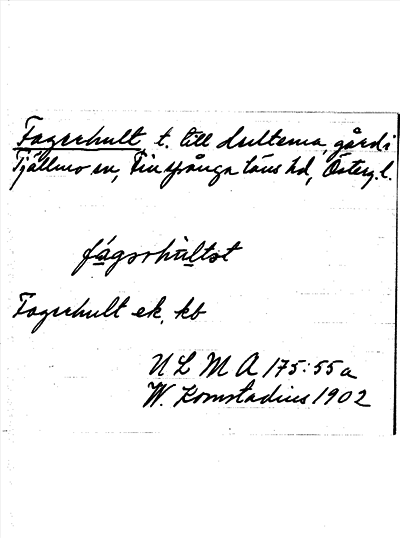 Fagerhult, t. till Hultema, gård i
Tjällmo sn, Finspånga läns hd, Österg. l.
fágərhùltət
Fagerhult ek. kb
ULMA 175:55a
W. Komstadius 1902